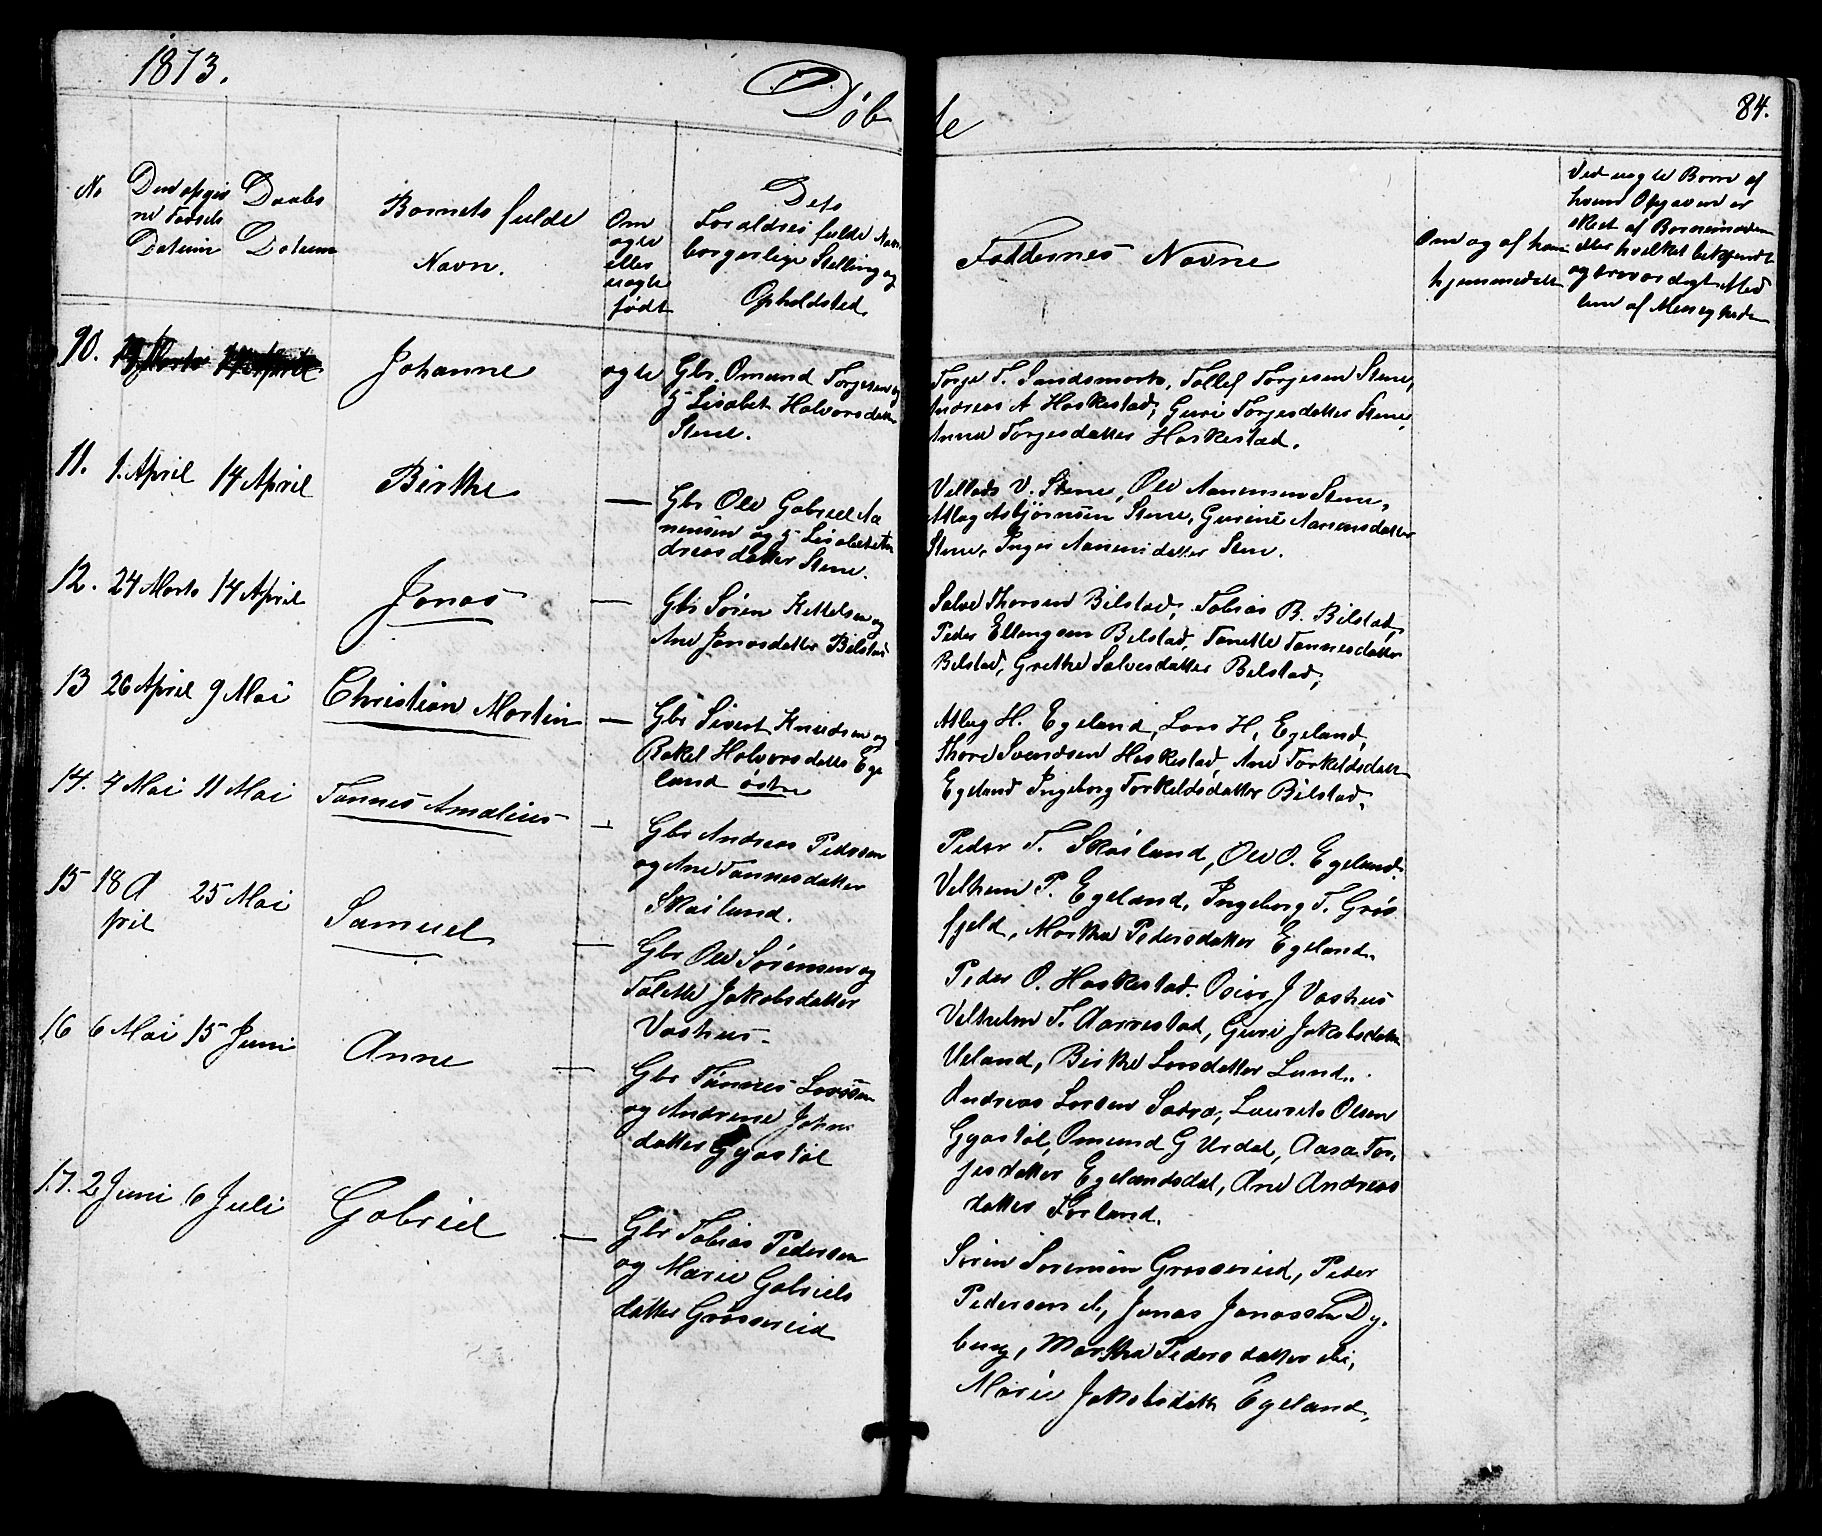 1873.
Døbte
84.
No
Den opgiv
ne Fødsels
Datum
Daabs
Datum
Barnets fulde
Navn.
Om
ægte
eller
uægte
født
Dets
Foraldres fulde Navn
borgerlige Stelling og
Opholdsted
Faddernes Navne
Om og af hvem
hjemmedøbt
Ved uægte Børn af
hvem Opgaven er
skeet af Barnemoderen
eller hvilket bekjendt
og troværdigt Med
lem af Menigheden
90.
Johanne
ægte
Gbr. Omund Torjesen og
H. Lisabet Halvorsdatter
Stene.
Torge T. Sandsmark, Tollef Torjesen Stene,
Andreas A Haskestad, Guri Torjesdatter Stene,
Anna Torjesdatter Haskestad.
11.
1. April
14 April
Birthe
—
Gbr Ole Gabriel Aa
nensen og H. Lisabet An
dreasdatter Stene.
V. Stene, Ole Aanensen Stene,
Atlag Asbjørnsen Stene, Gurine Aanensdatter
Stene, Inger Aanensdatter Stene.
12.
24 Marts
14 April
Jonas
—
Gbr Søren Kittelsen og
Ane Jonasdatter Bilstad
Salve Thorsen Bilstad, Tobias B. Bilstad,
Peder Ellingsen Bilstad, Tonette Tønnesdatter
Bilstad, Grethe Salvesdatter Bilstad,
13
26 April
9 Mai
Christian Martin
—
Gbr Sivert Knudsen og
Rakel Halvorsdatter Ege
land østre
Atlag H. Egeland, Lars H. Egeland,
Thore Svendsen Haskestad, Ane Torkeldsdatter
Egeland Ingeborg Torkeldsdatter Bilstad.
14.
4 Mai
11 Mai
Tønnes Amalius
—
Gbr Andreas Pedersen
og Ane Tønnesdatter
Skailand.
Peder T. Skailand, Ole O. Egeland.
Velhem P. Egeland, Ingeborg T. Grøs
fjeld, Martha Pedersdatter Egeland.
15
18 A
pril
25 Mai
Samuel
—
Gbr Ole Sørensen og
Talette Jakobsdatter
Vashus.
Peder O. Haskestad. Osias J Vashus
Velhelm T. Aarrestad, Guri Jakobsdatter
Ueland, Birthe Larsdatter Lund.
16
6 Mai
15 Juni
Anne
—
Gbr Tønnes Larssen
og Andrene Johns
datter Gyastøl
Andreas Larsen Sætra, Laurits Olsen
Gyastøl, Omund G Urdal, Aasa Tor-
jesdatter Egelandsdal, Ane Andreas
datter Førland.
17.
2 Juni
6 Juli
Gabriel
—
Gbr Tobias Pedersen
og Marie Gabriels
datter Grøssereid
Sørin Sørensen Grøssereid, Peder
Pedersen ib, Jonas Jonassen Dy-
bing, Martha Pedersdatter ib,
Marie Jakobsdatter Egeland,